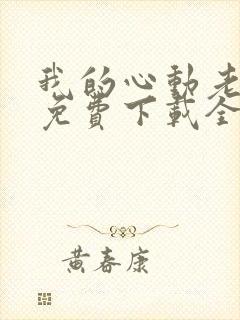 我的心動老
免費下載全
黃春康